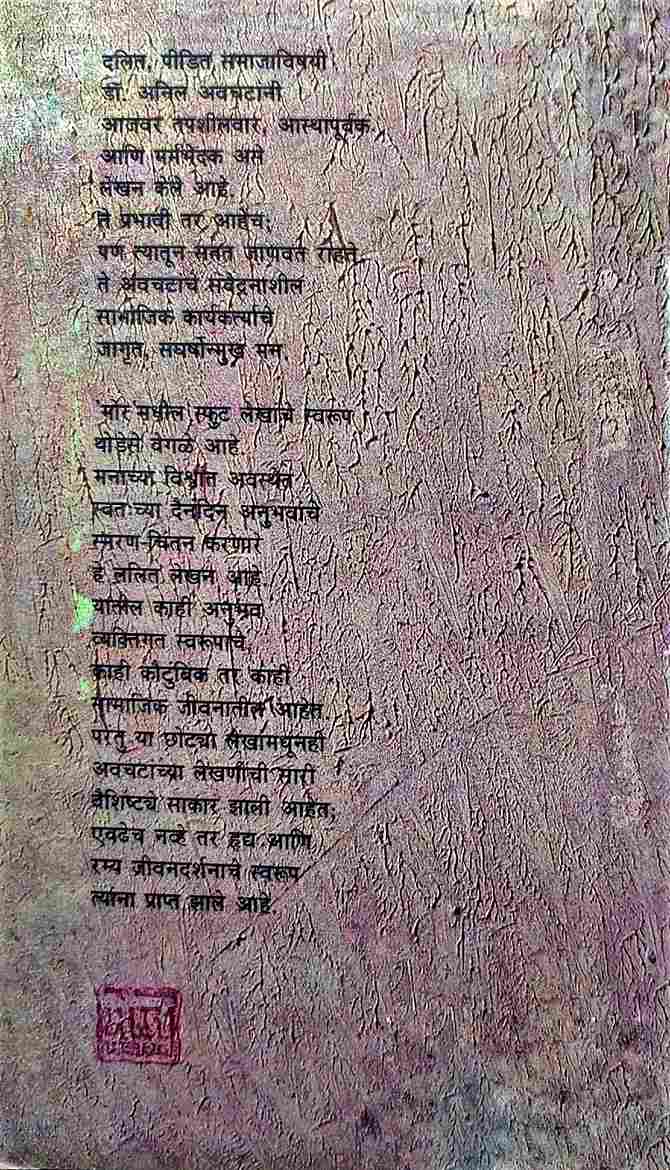 दलित, पीडित समाजाविषयी
डॉ. अनिल अवचटांनी
आजवर तपशीलवार, आस्थापूर्वक
आणि मर्मभेदक असे
लेखन केले आहे.
ते प्रभावी तर आहेच;
पण त्यातून सतत जाणवत राहते
ते अवचटांचे संवेदनाशील
सामाजिक कार्यकर्त्याचे
जागृत, संघर्षोन्मुख मन.
'मोर'मधील स्फुट लेखांचे स्वरूप
थोडेसे वेगळे आहे.
मनाच्या विश्रांत अवस्थेत
स्वतःच्या दैनंदिन अनुभवांचे
स्मरण-चिंतन करणारे
हे ललित लेखन आहे.
यातील काही अनुभव
व्यक्तिगत स्वरूपाचे,
काही कौटुंबिक तर काही
सामाजिक जीवनातील आहेत.
परंतु या छोट्या लेखांमधूनही
अवचटांच्या लेखणीची सारी
वैशिष्ट्ये साकार झाली आहेत;
एवढेच नव्हे तर हृद्य आणि
रम्य जीवनदर्शनाचे स्वरूप
त्यांना प्राप्त झाले आहे.